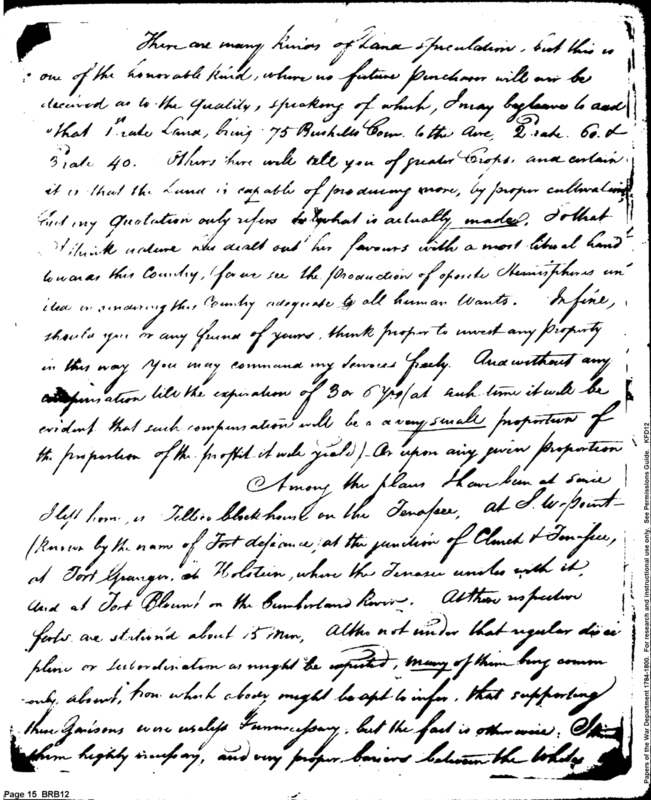 There are many kinds of Land Speculation, but this is
one of the honorable kind, where no future Purchaser will ever be
deceived as to the Quality, speaking of which, I may beg leave to add
"that 1st rate Land, bring 75 Bushells Corn to the Acre, 2d rate 60 &
3d rate 40. Others here will tell you of greater Crops, and certain
it is that the Land is capable of producing more, by proper cultivation,
but my Quotation only refers to what is actually made, So that
I think nature has dealt out her favours with a most liberal hand
towards this Country, for we see the production of oposite Hemispheres un
ited in rendering this Country adequate to all human Wants. In fine,
should you or any friend of yours, think proper to invest any Property
in this way You may command my Services freely. And without any
compensation till the expiration of 3 or 6 Yrs (at such time it will be
evident that such compensation will be a very small proportion of
the proportion of the proffit it will yield) - Or upon any given Proportion
Among the places I have been at since
I left home, is Tellico blockhouse on the Tenasee, at S. W. Point -
(known by the name of Fort defiance, at the junction of Clinch & Tenasee,
at Fort Grainger, at Holstein, where the Tenasee unites with it,
And at Fort Blount on the Cumberland River. At these respective
forts are station'd about 15 Men, Altho not under that regular disci
pline or subordination as might be expected, many of them being comm
only absent, from which a body might be apt to infer, that supporting
these Garisons were useless & unnecessary, but the fact is otherwise; I think
them highly necessary, and very proper bariers between the Whites
Page 15 BRB12
Papers of the War Department 1784-1800. For research and instructional use only. See Permissions Guide. KFD12